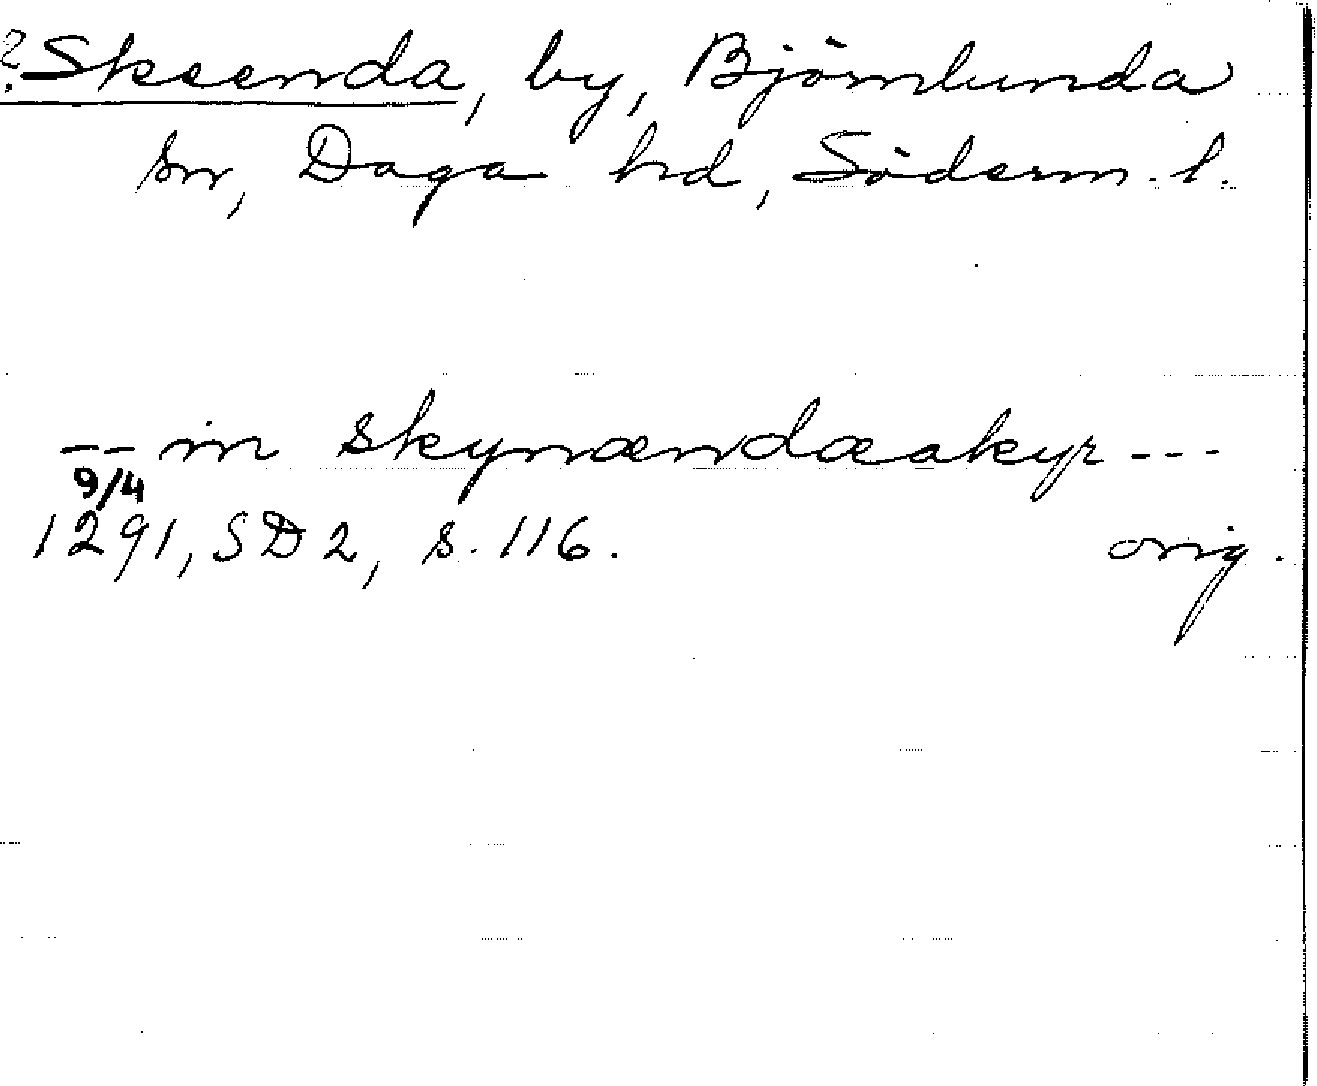 ? Skeenda, by, Björnlunda
sn, Daga hd, Söderm. l.
-- in skynændæakyr ---
9/4
1291, SD 2, s. 116. orig.